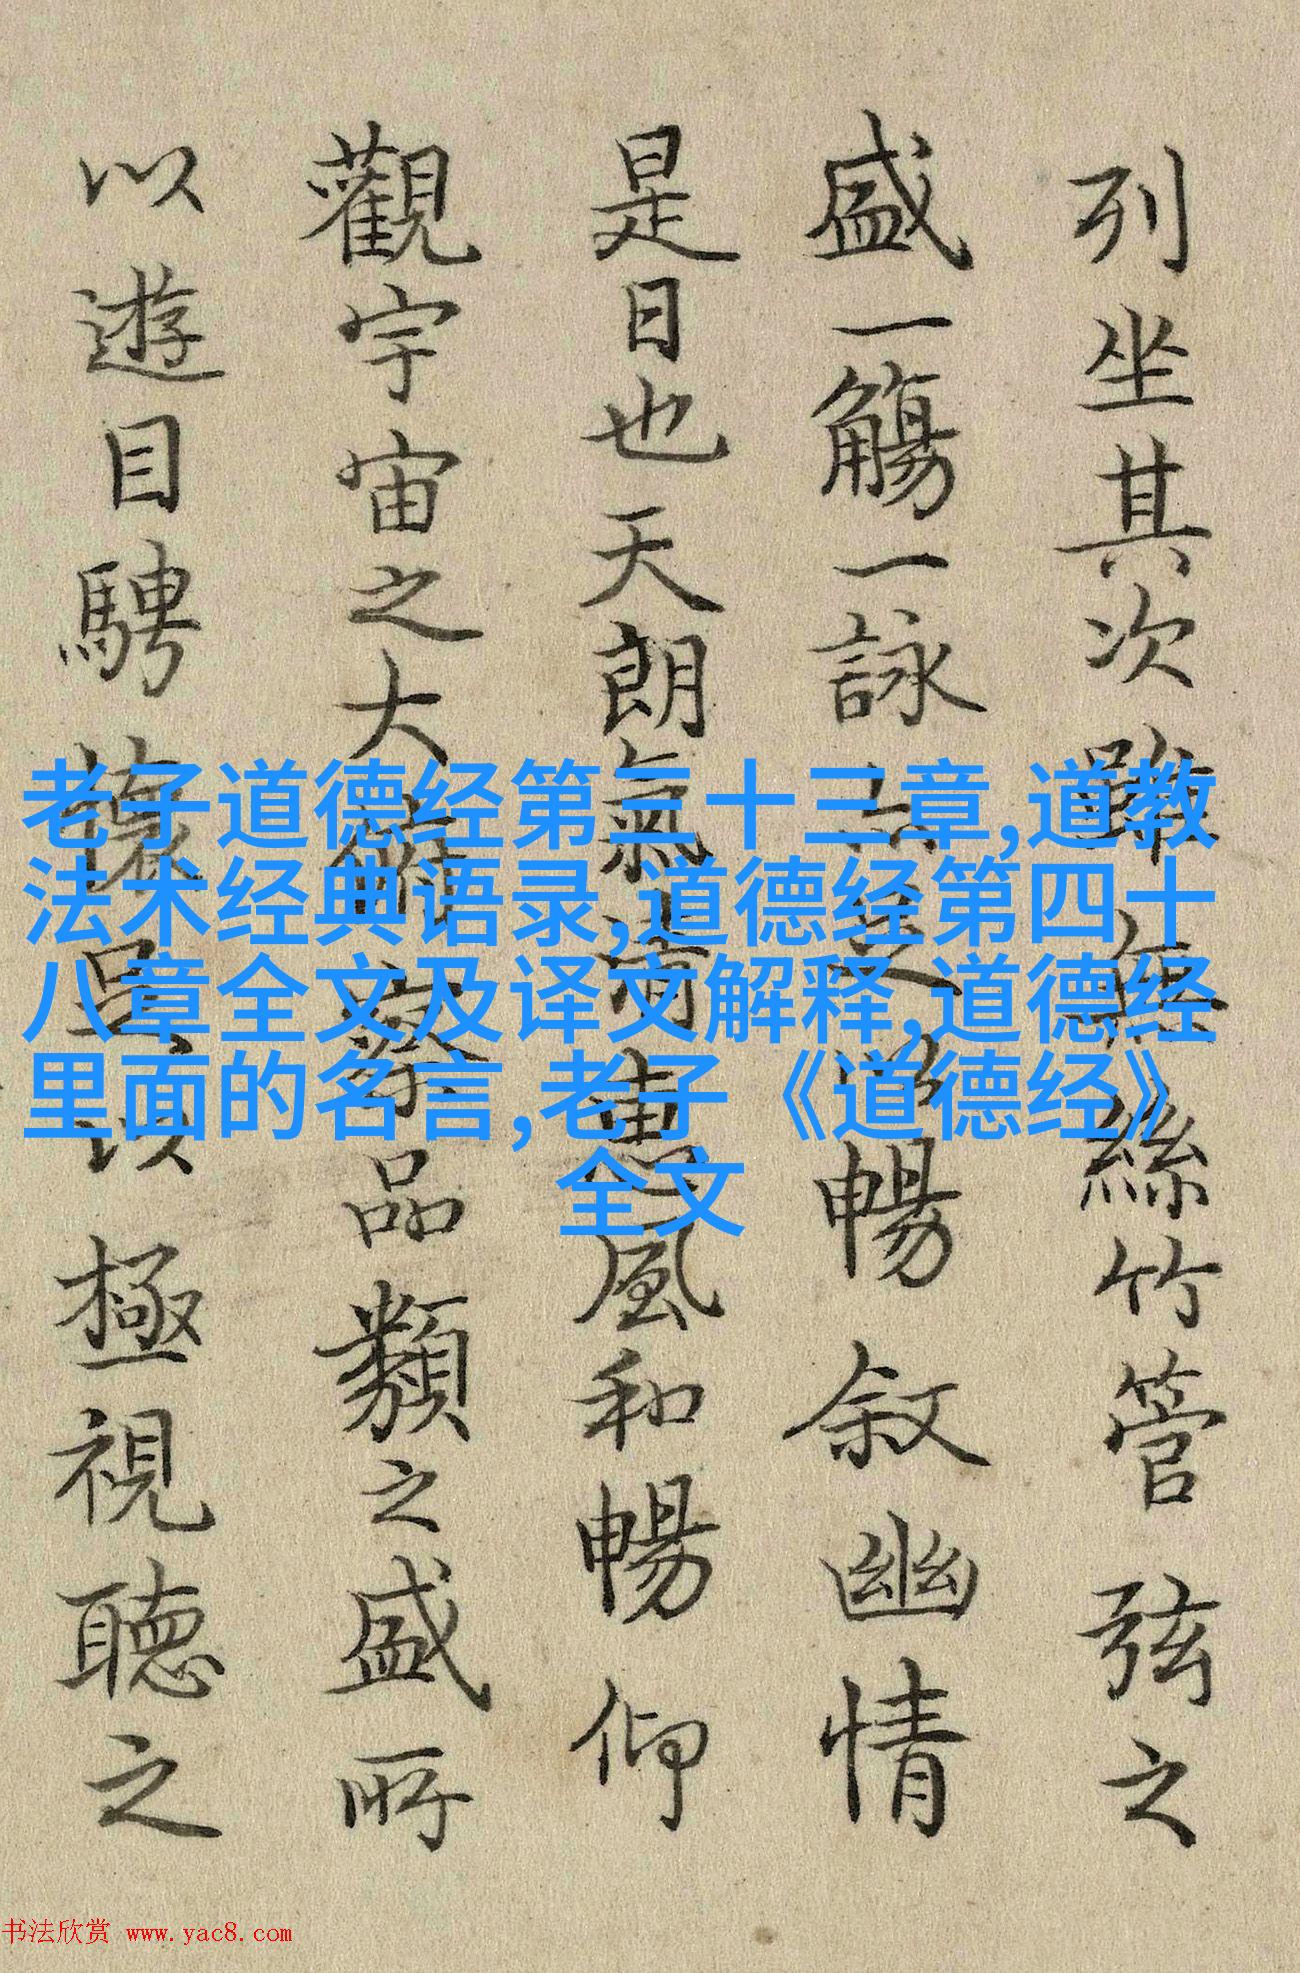 列坐其次雖無絲竹管弦之
盛一觴一詠亦足以暢叙幽情
是日也天朗氣清惠風和暢仰
觀宇宙之大俯察品類之盛所
以遊目騁懷足以極視聽之
老子道德经第三十三章,道教
法术经典语录,道德经第四十
八章全文及译文解释,道德经
里面的名言,老子《道德经》
全文
书法欣赏 www.yac8.com